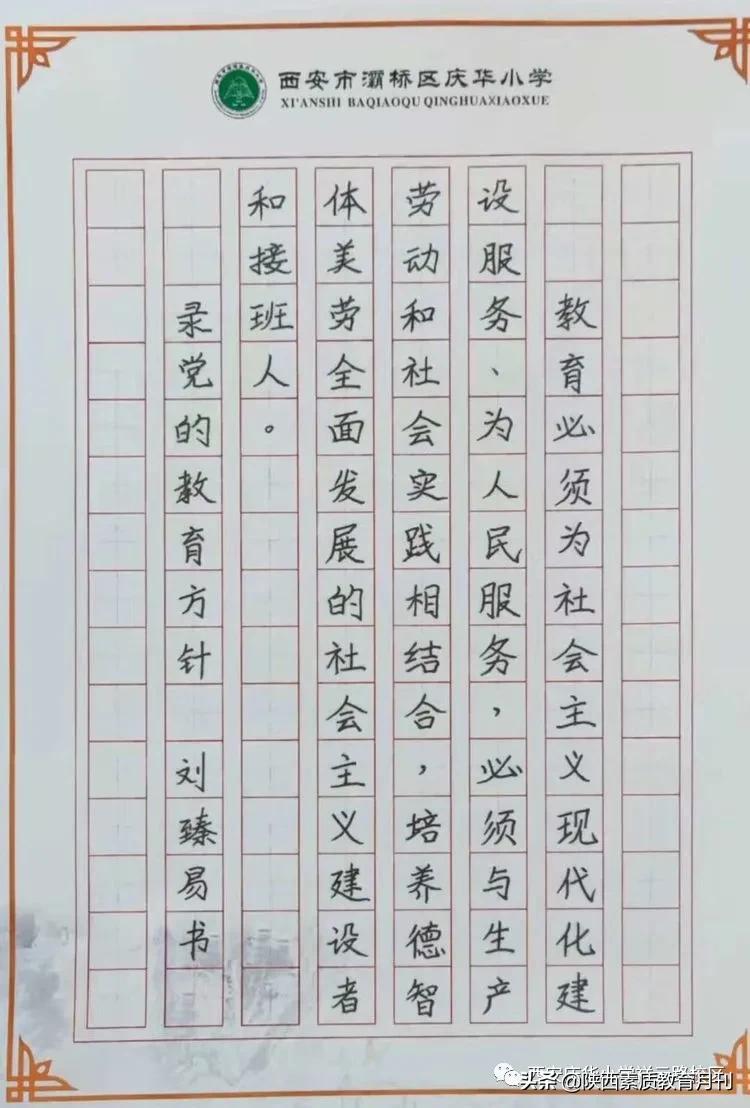 西安市灞桥区庆华小学
XI'ANSHI BAQIAOQU QINGHUAXIAOXUE
教育必须为社会主义现代化建
设服务、为人民服务，必须与生产
劳动和社会实践相结合，培养德智
体美劳全面发展的社会主义建设者
和接班人。
录党的教育方针 刘臻易书
头条@陕西素质教育月刊